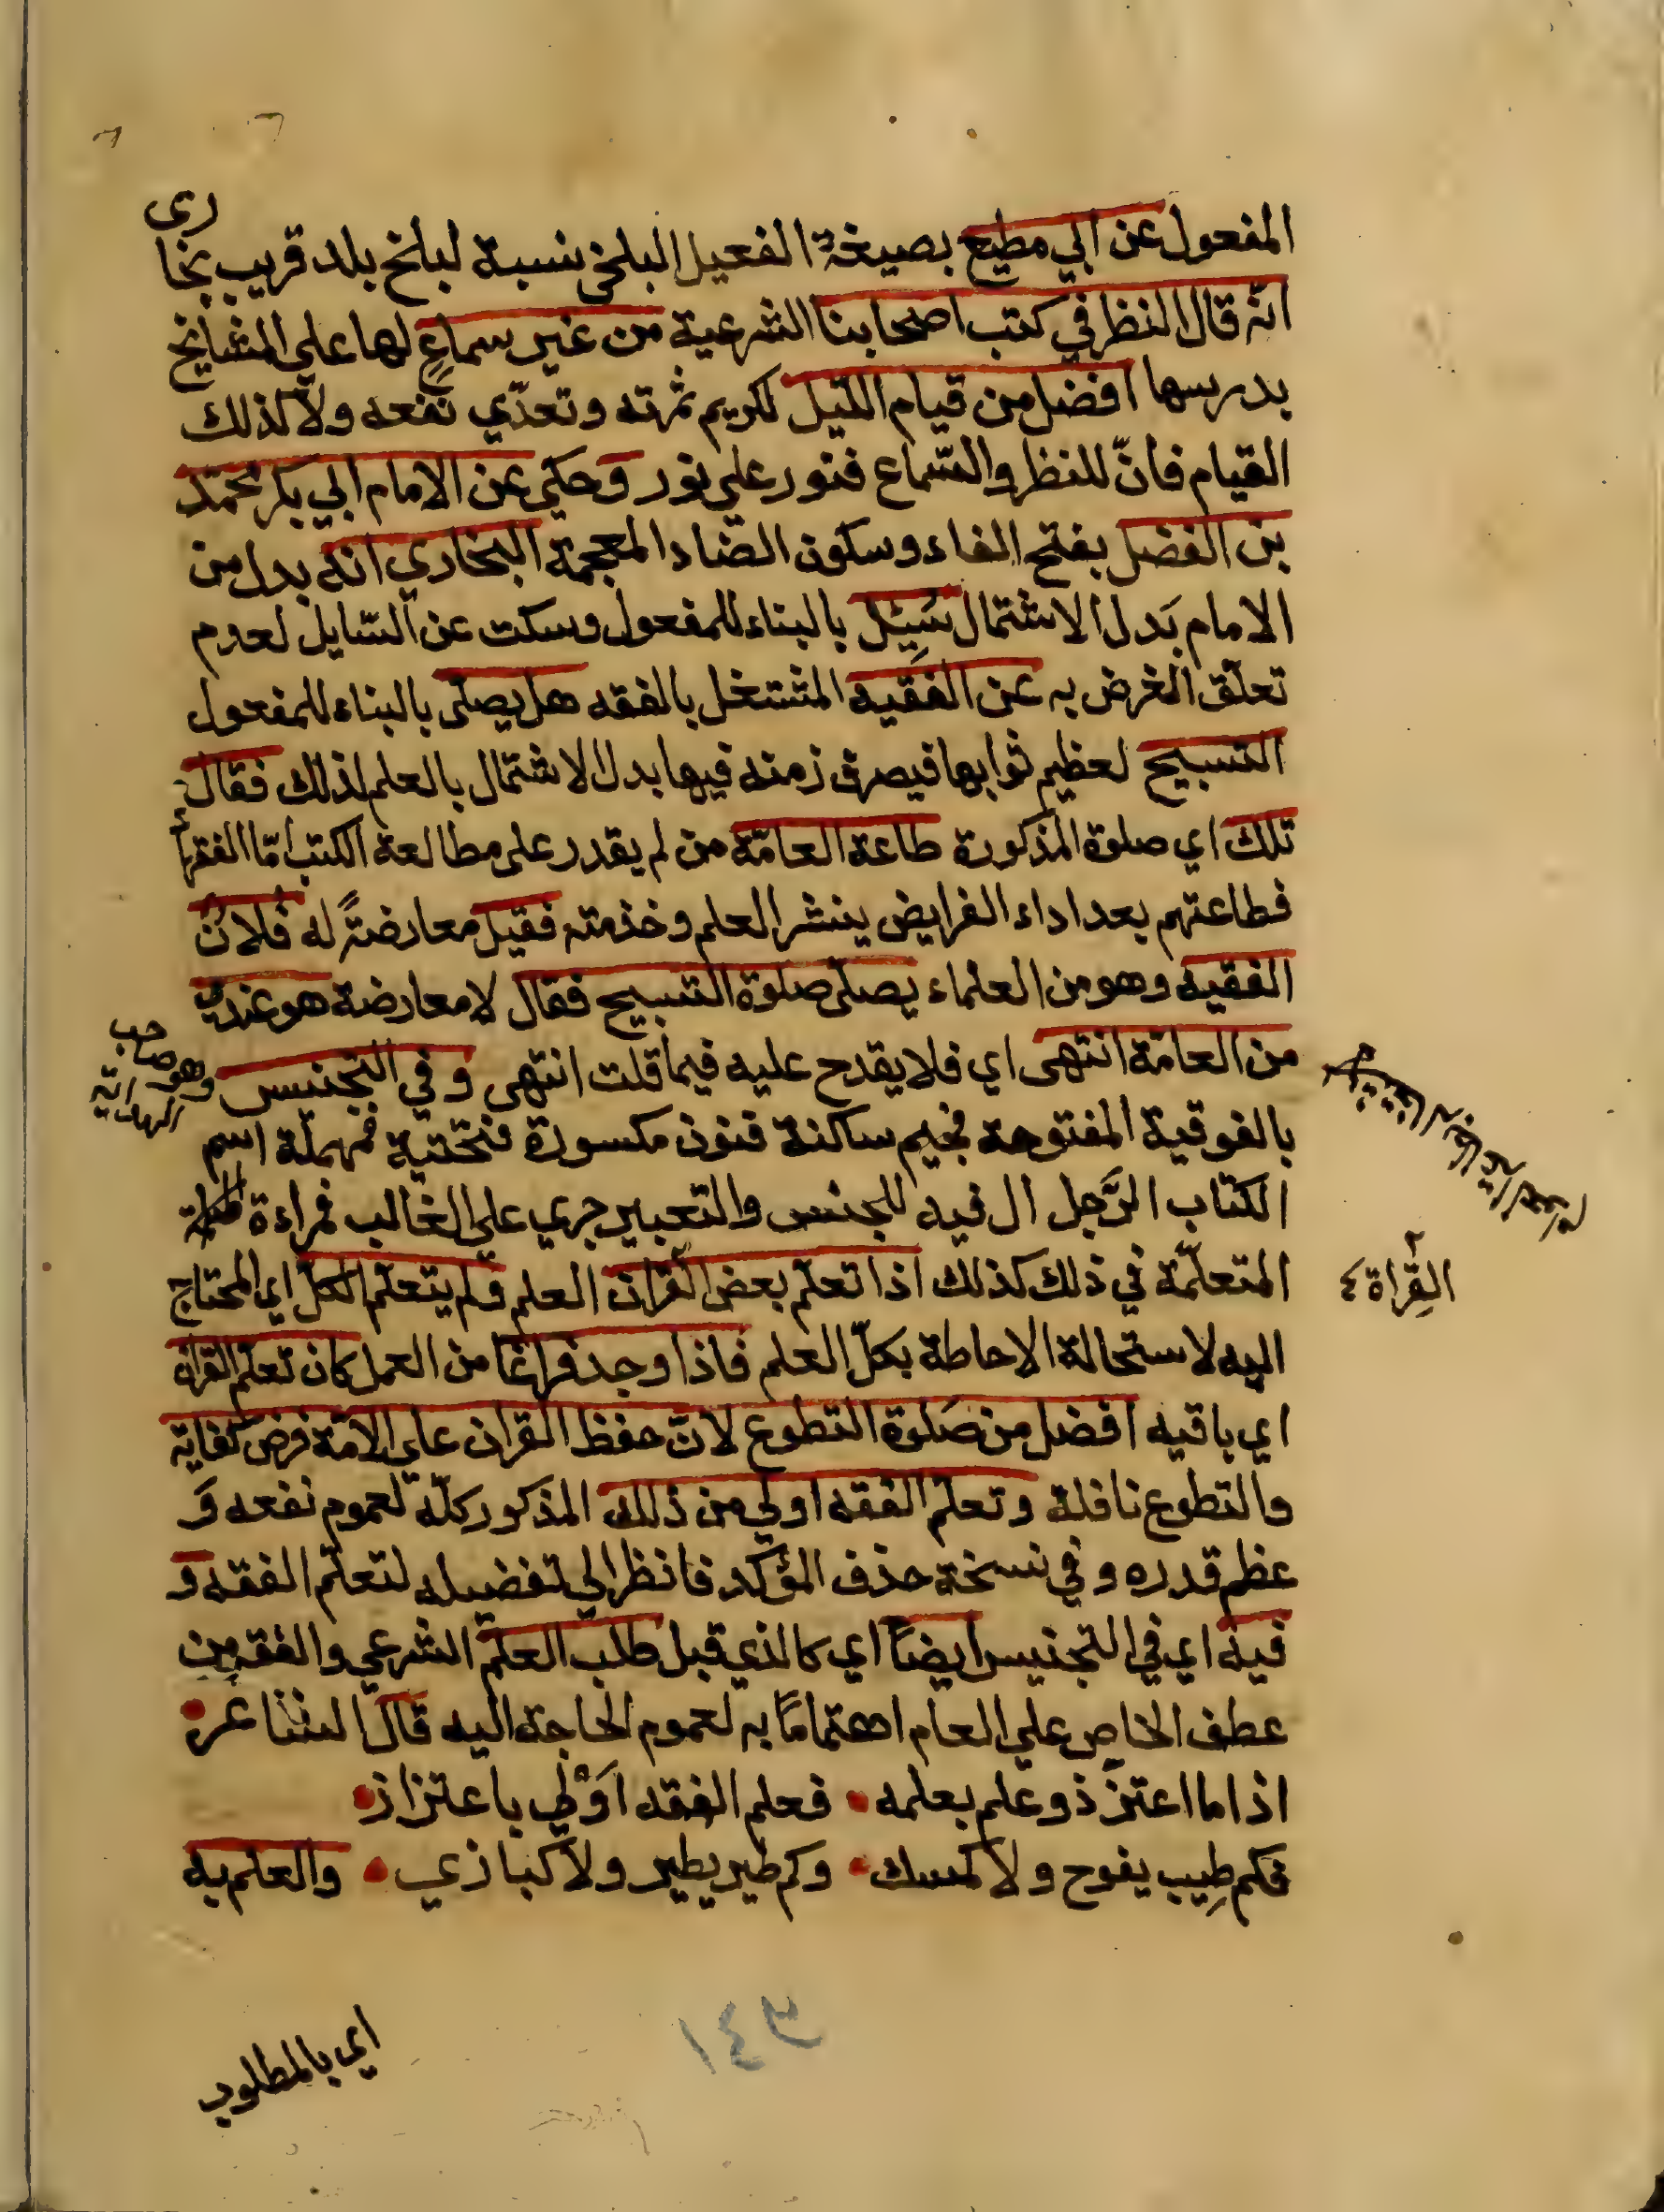 المفعول عن ابي مطيع بصيغة الفعيل البلخي نسبة لبلخ بلد قريب بخارى
انّه قال النظر في كتب اصحابنا الشرعية من غير سماعٍ لها على المشايخ
بدرسها افضل من قيام الليل لكريم ثمرته وتعدّي نفعه ولا كذلك
القيام فانّ للنظر والسّماع فنور على نور وحكي عن الامام ابي بكر محمّد
بن الفضل بفتح الفاء وسكون الضاد المعجمة البخاري انه بدل من
الامام بَدل الاشتمال سُئِل بالبناء للمفعول وسكت عن السّايل لعدم
تعلّق الغرض به عن الفقيه المشتغل بالفقه هل يصلى بالبناء للمفعول
التسبيح لعظيم ثوابها فيصرف زمنه فيها بدل الاشتمال بالعلم لذلك فقال
تلك اي صلوة المذكورة طاعة العامّة من لم يقدر على مطالعة الكتب امّا الفقهاء
فطاعتهم بعد اداء الفرايض ينشر العلم وخذمته فقيل معارضةً له فلانٌ
الفقيه وهو من العلماء يصلى صلوة التسبيح فقال لا معارضة هو عندي
من العامّة انتهى اي فلا يقدح عليه فيما قلت انتهى وفي التجنيس
وهو صاحب
الهداية
بالفوقية المفتوحة فجيم ساكنة فنون مكسورة فتحتية فمهملة اسم
الكتاب الرَّجل ال فيه للجنس والتعبير جري على الغالب فمراءة
المتعلّمة في ذلك كذلك اذا تعلّم بعض القران العلم ولم يتعلّم الكلّ اي المحتاج
القِراة ٤
اليه لاستحالة الاحاطة بكلّ العلم فاذا وجد فراغا من العمل كان تعلّم القران
اي باقيه افضل من صَلوة التطوع لانّ حفظ القران على الامّة فرض كفاية
والتطوع نافلة وتعلّم الفقه اولي من ذلك المذكور كلّه لعموم نفعه وَ
عظم قدره وفي نسخة حذف المؤكد فانظر الي تفضيله لتعلّم الفقه وَ
فيه اي في التجنيس ايضاً اي كالذي قبل طلب العلم الشرعي والفقه من
عطف الخاص على العام اهتماماً به لعموم الحاجة اليه قال الشاعر
اذا ما اعتزّ ذو علم بعلمه • فعلم الفقه اَوْلي باعتزاز •
فكم طِيب يفوح ولا كمسك • وكم طير يطير ولا كبازي • والعلم به
اي بالمطلوب